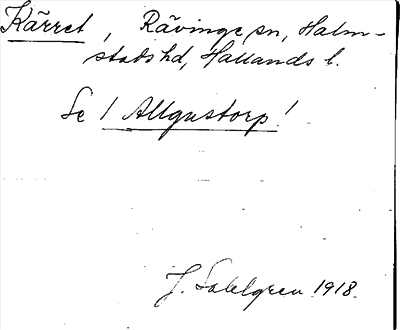 Kärret, Rävinge sn, Halm-
stads hd, Hallands l.
Se / Allgustorp!
J. Sahlgren 1918.